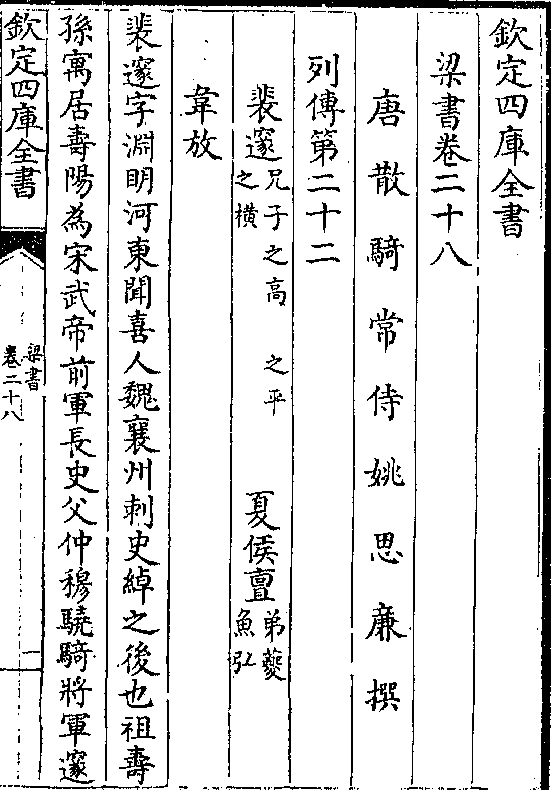 欽定四庫全書
梁書卷二十八
唐散騎常侍姚思廉撰
列傳第二十二
裴邃兄子之高 之平 之橫 夏侯亶弟夔 魚弘
韋放
裴邃字淵明河東聞喜人魏襄州刺史綽之後也祖壽
孫寓居壽陽為宋武帝前軍長史父仲穆驍騎將軍邃
欽定四庫全書
梁書
卷二十八
一